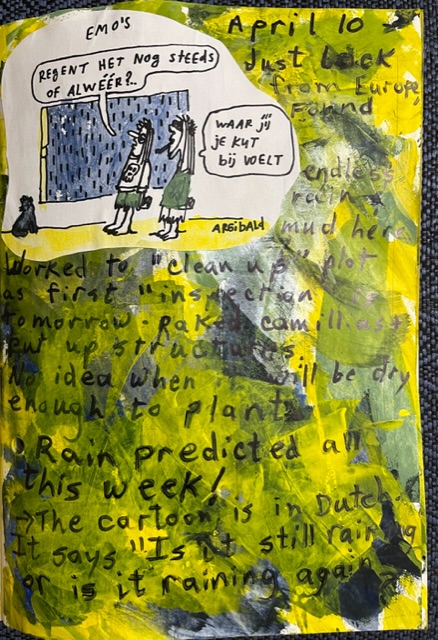 EMO'S
REGENT HET NOG STEEDS
OF ALWÉÉR?..
WAAR JIJ
JE KUT
BIJ VOELT
ARGIBALD
April 10
Just back
from Europe,
Found
endless
rain &
mud here
Worked to "clean up" plot
as first "inspection" is
tomorrow. Raked camillias +
put up structures
No idea when it will be dry
enough to plant.
Rain predicted all
this week!
→The cartoon is in Dutch.
It says "Is it still raining
or is it raining again